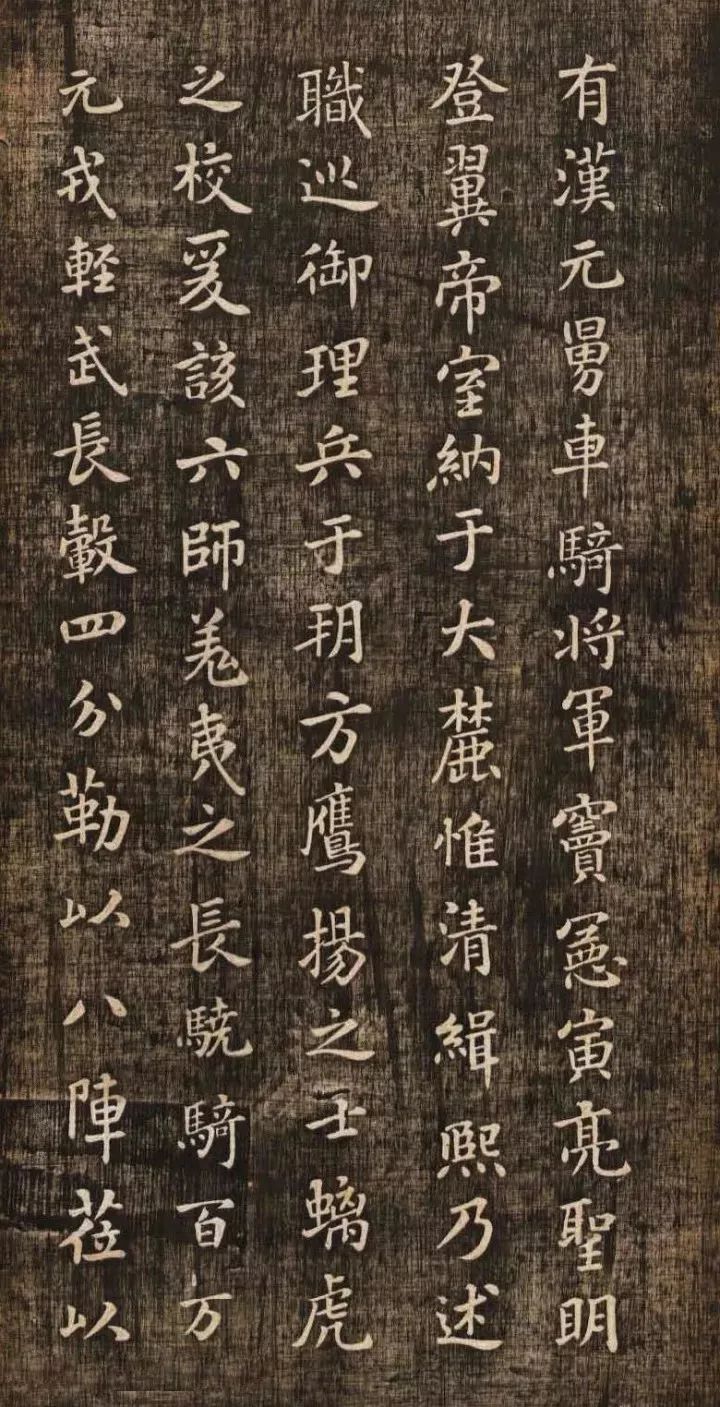 有漢元舅車騎将軍竇憲寅亮聖明
登翼帝室納于大麓惟清緝熙乃述
職巡御理兵于朔方鷹揚之士螭虎
之校爰該六師羌夷之長驍騎百万
元戎輕武長轂四分勒以八陣莅以